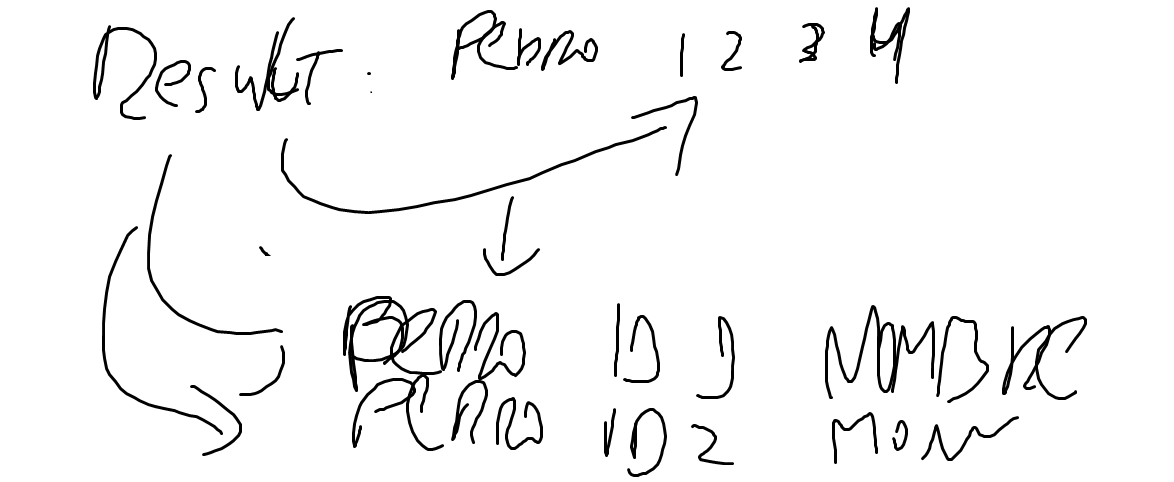 Result: PERRO 1 2 3 4
PERRO ID 1 NOMBRE
PERRO ID 2